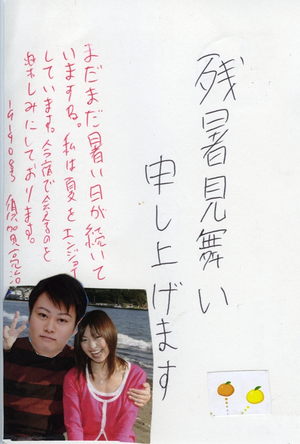 残暑見舞い
申し上げます
まだまだ暑い日が続いて
いますね。私は夏をエンジョイ
しています。今宿で会えるのを
楽しみにしております。